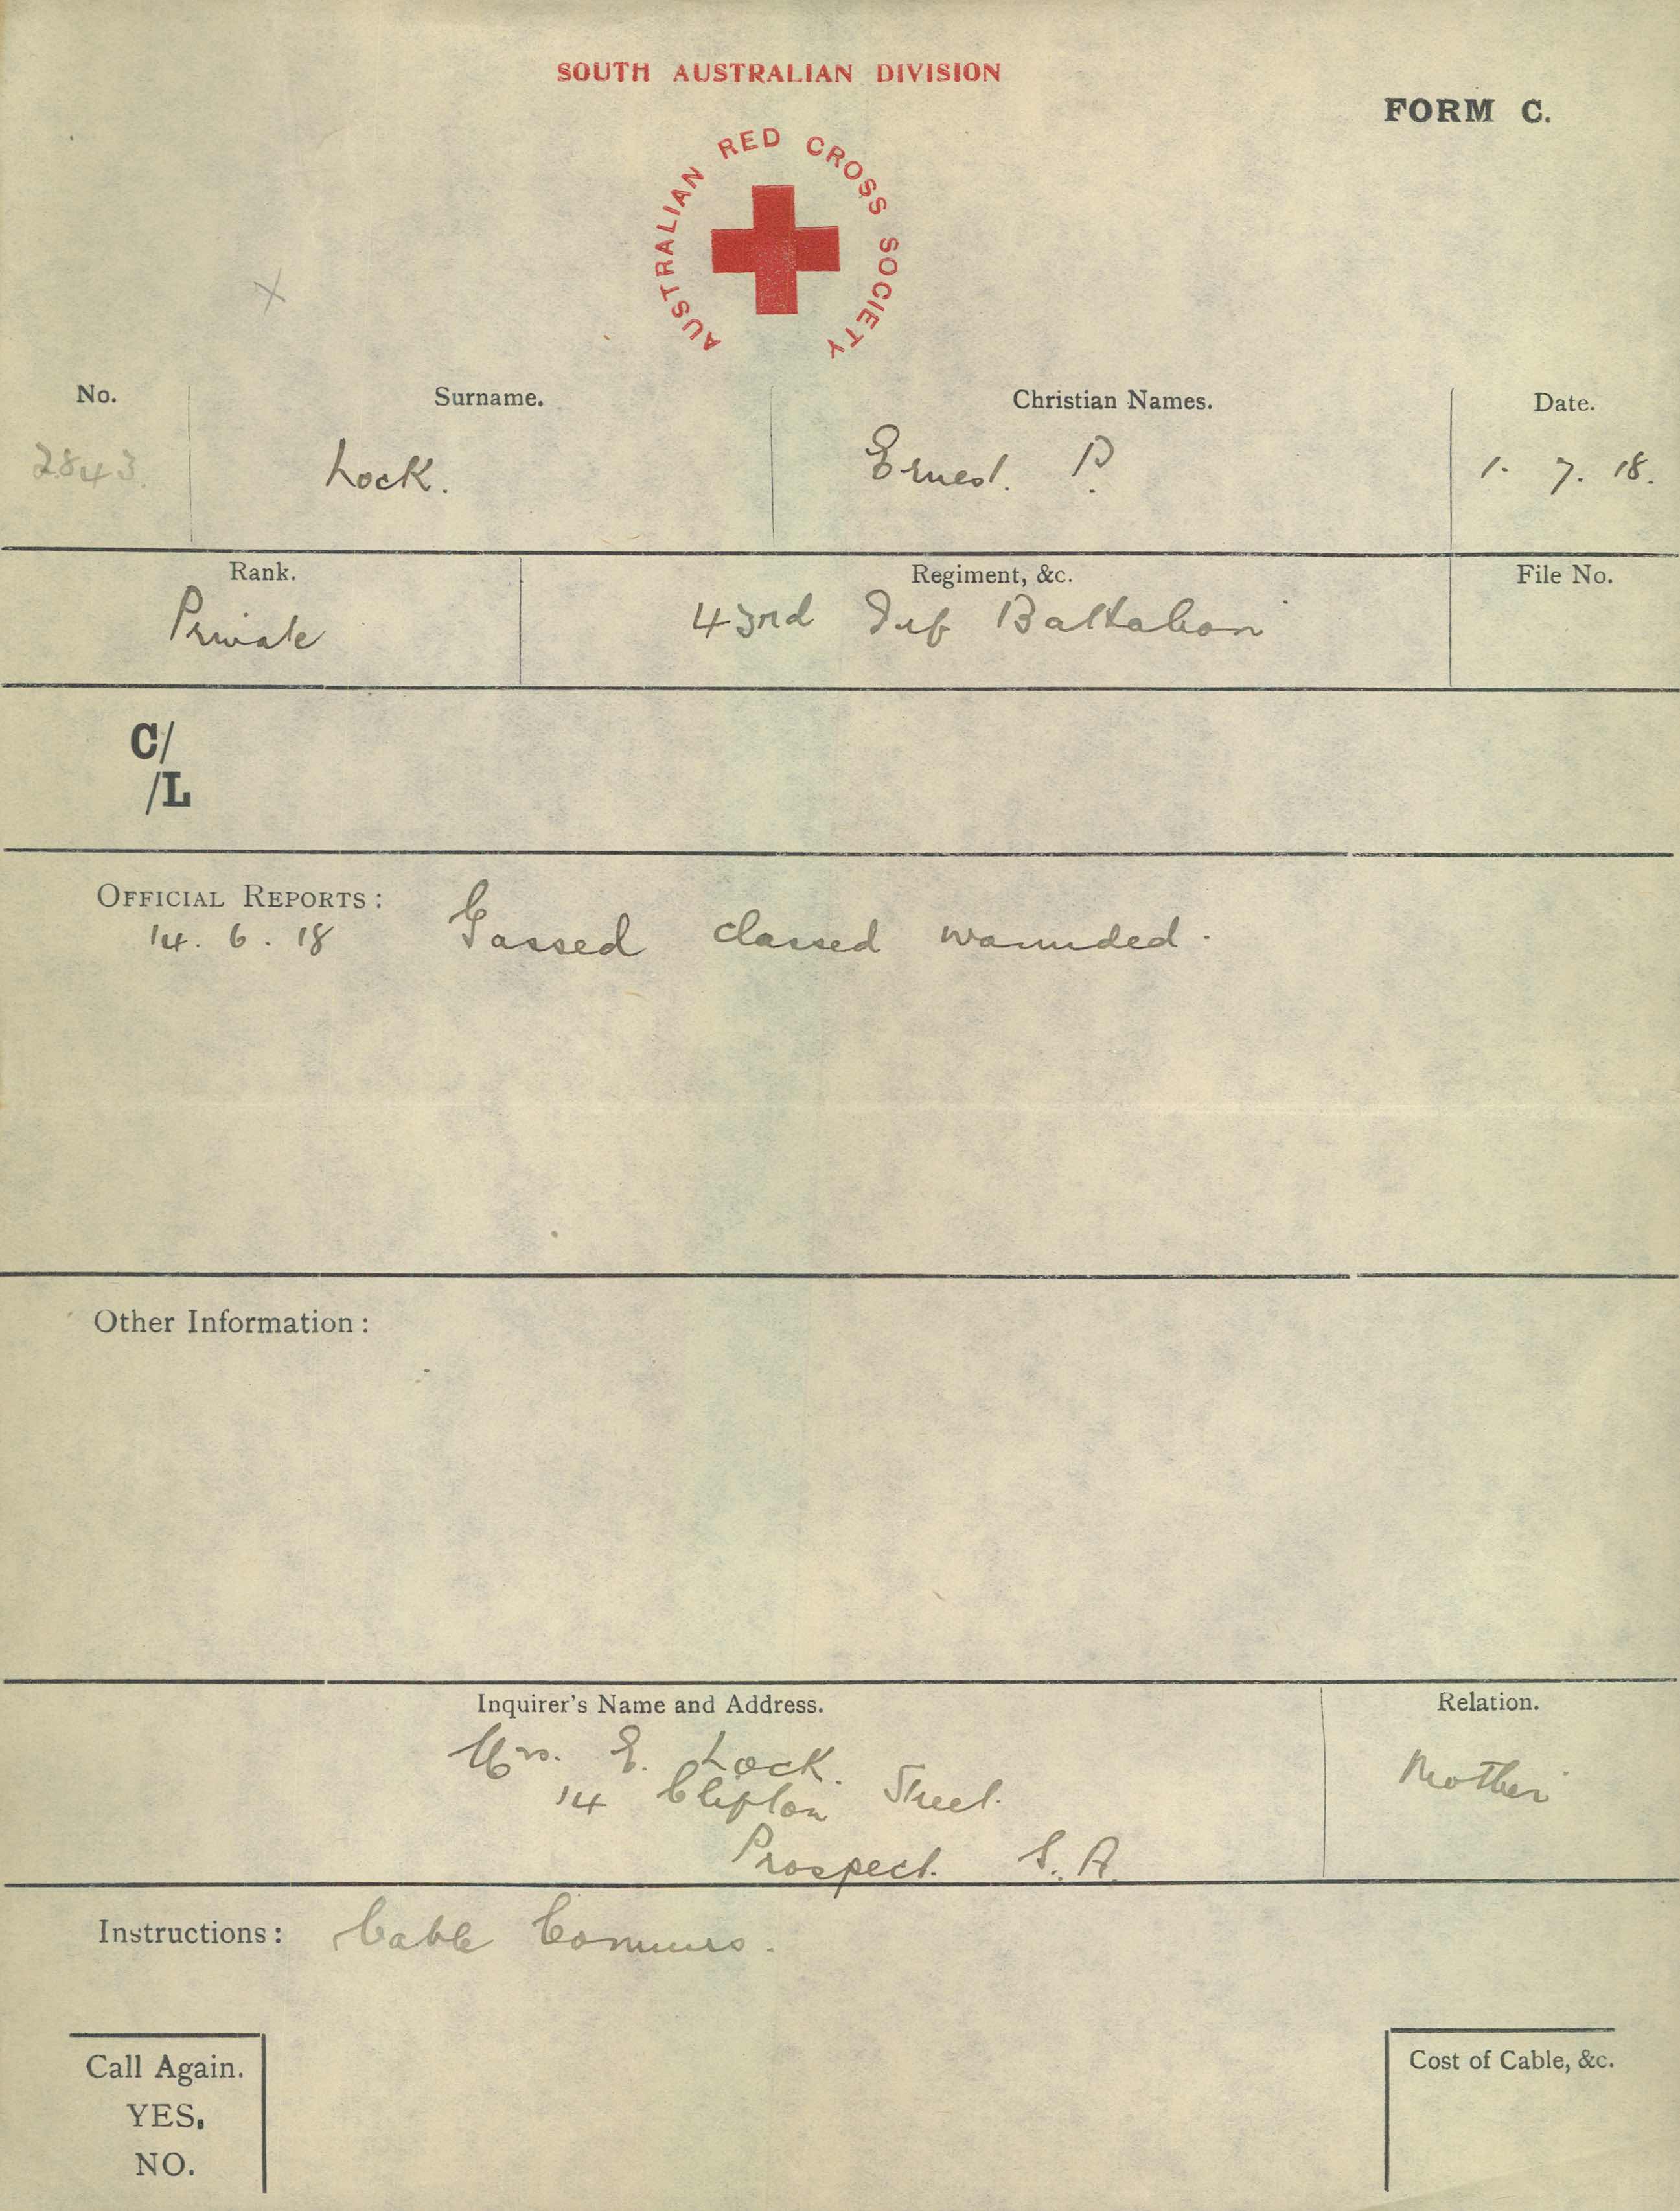 SOUTH AUSTRALIAN DIVISION
FORM C.
AUSTRALIAN RED CROSS SOCIETY
No. Surname. Christian Names. Date.
2843. Lock. Ernest. P. 1. 7. 18.
Rank. Regiment, &c. File No.
Private 43rd Inf Battalion
C/
/L
OFFICIAL REPORTS:
14. 6. 18 Gassed classed wounded.
Other Information:
Inquirer's Name and Address. Relation.
Mrs. E. Lock. Mother
14 Clifton Street.
Prospect. S.A.
Instructions: Cable Commrs.
Call Again. Cost of Cable, &c.
YES.
NO.